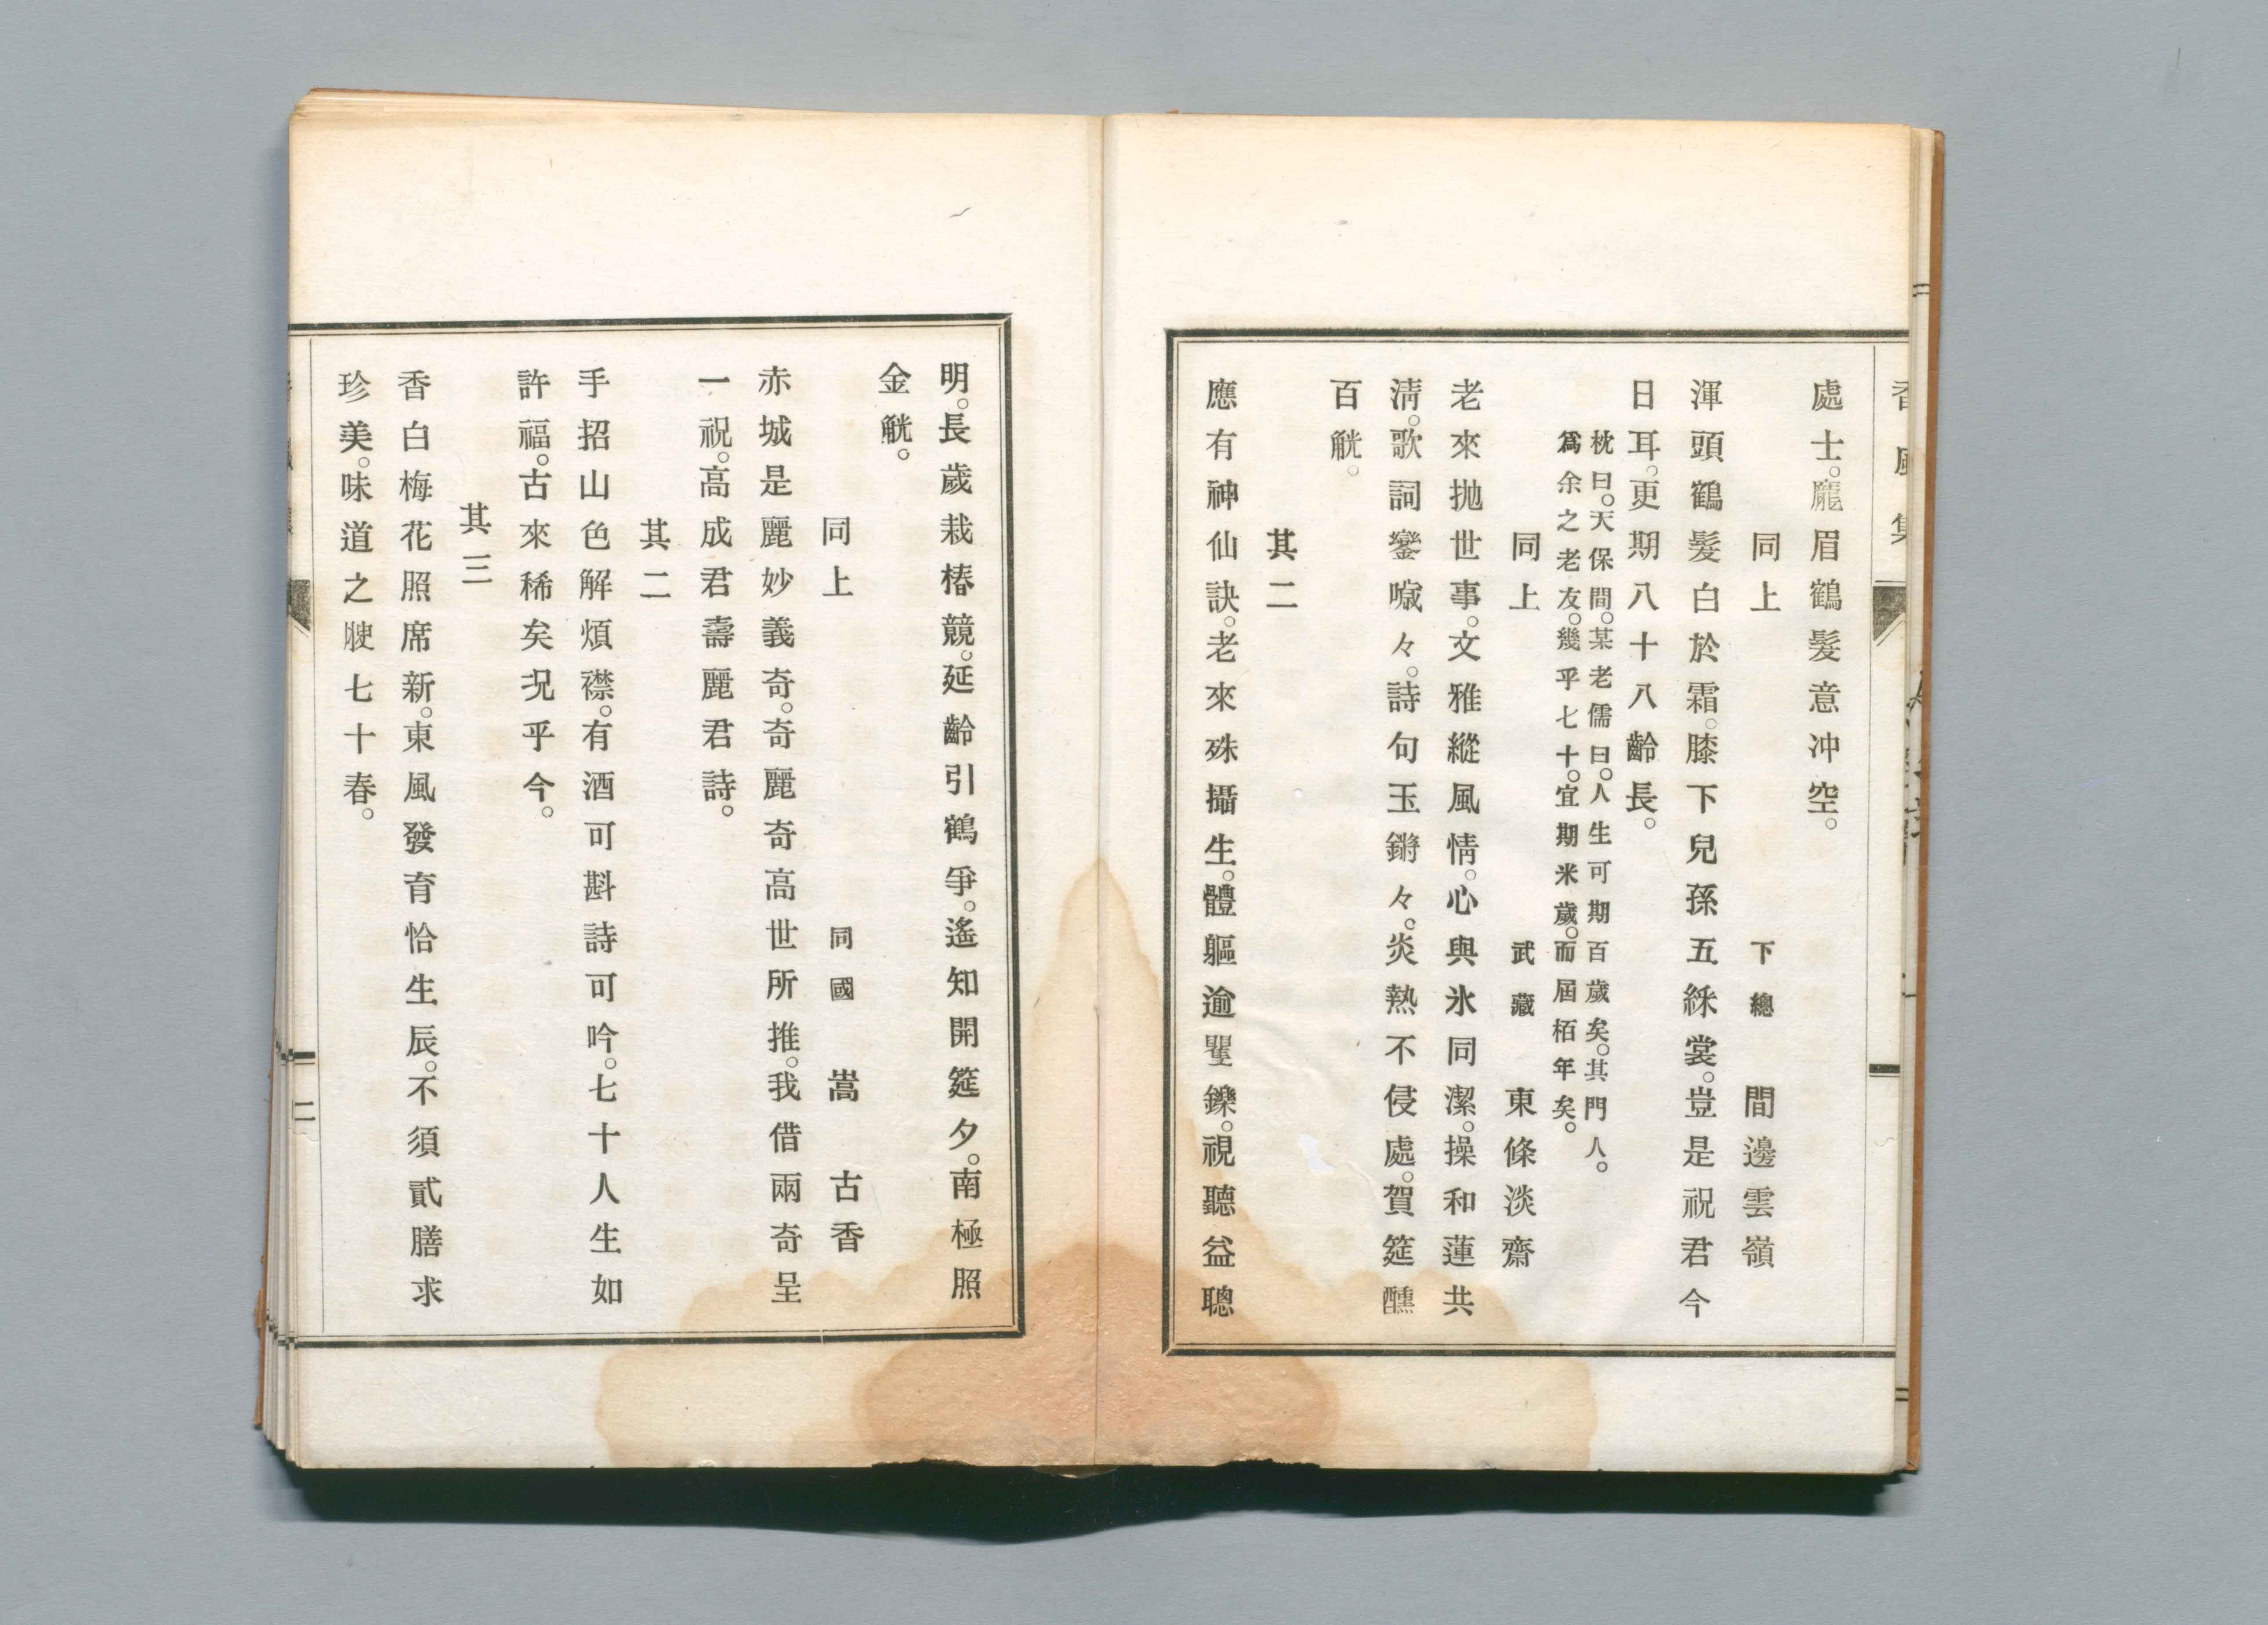 香風集
處士。龐眉鶴髮意冲空。
同上　下總　間邊雲嶺
渾頭鶴髮白於霜。膝下兒孫五綵裳。豈是祝君今
日耳。更期八十八齡長。
枕曰。天保間。某老儒曰。人生可期百歲矣。其門人。
爲余之老友。幾乎七十。宜期米歲。而屆栢年矣。
同上　武藏　東條淡齋
老來拋世事。文雅縱風情。心與氷同潔。操和蓮共
淸。歌詞鑾噦々。詩句玉鏘々。炎熱不侵處。賀筵醺
百觥。
其二
應有神仙訣。老來殊攝生。體軀逾矍鑠。視聽益聰
明。長歲栽椿競。延齡引鶴爭。遙知開筵夕。南極照
金觥。
同上　同國　嵩古香
赤城是麗妙義奇。奇麗奇高世所推。我借兩奇呈
一祝。高成君壽麗君詩。
其二
手招山色解煩襟。有酒可斟詩可吟。七十人生如
許福。古來稀矣况乎今。
其三
香白梅花照席新。東風發育恰生辰。不須貳膳求
珍美。味道之腴七十春。
二